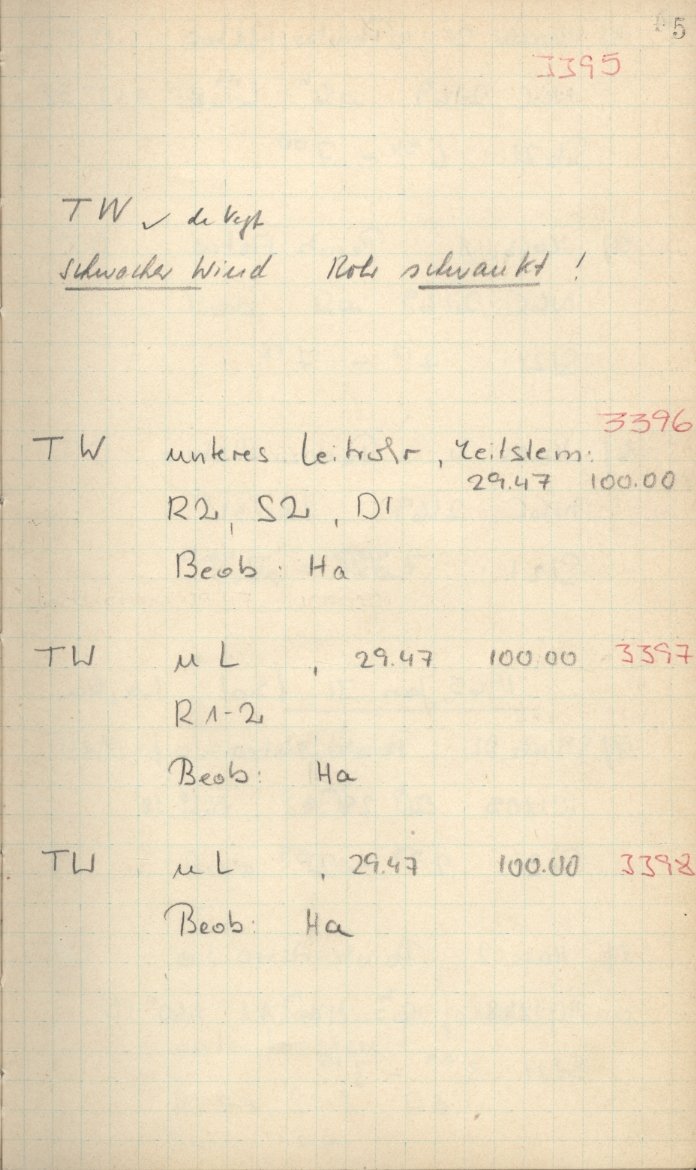 5
3395
TW ✓ de Vegt
schwacher Wind Rohr schwankt !
3396
TW unteres Leitrohr, Leitstern:
29.47 100.00
R2, S2, D1
Beob: Ha
TW uL , 29.47 100.00 3397
R 1-2
Beob: Ha
TW uL , 29.47 100.00 3398
Beob: Ha